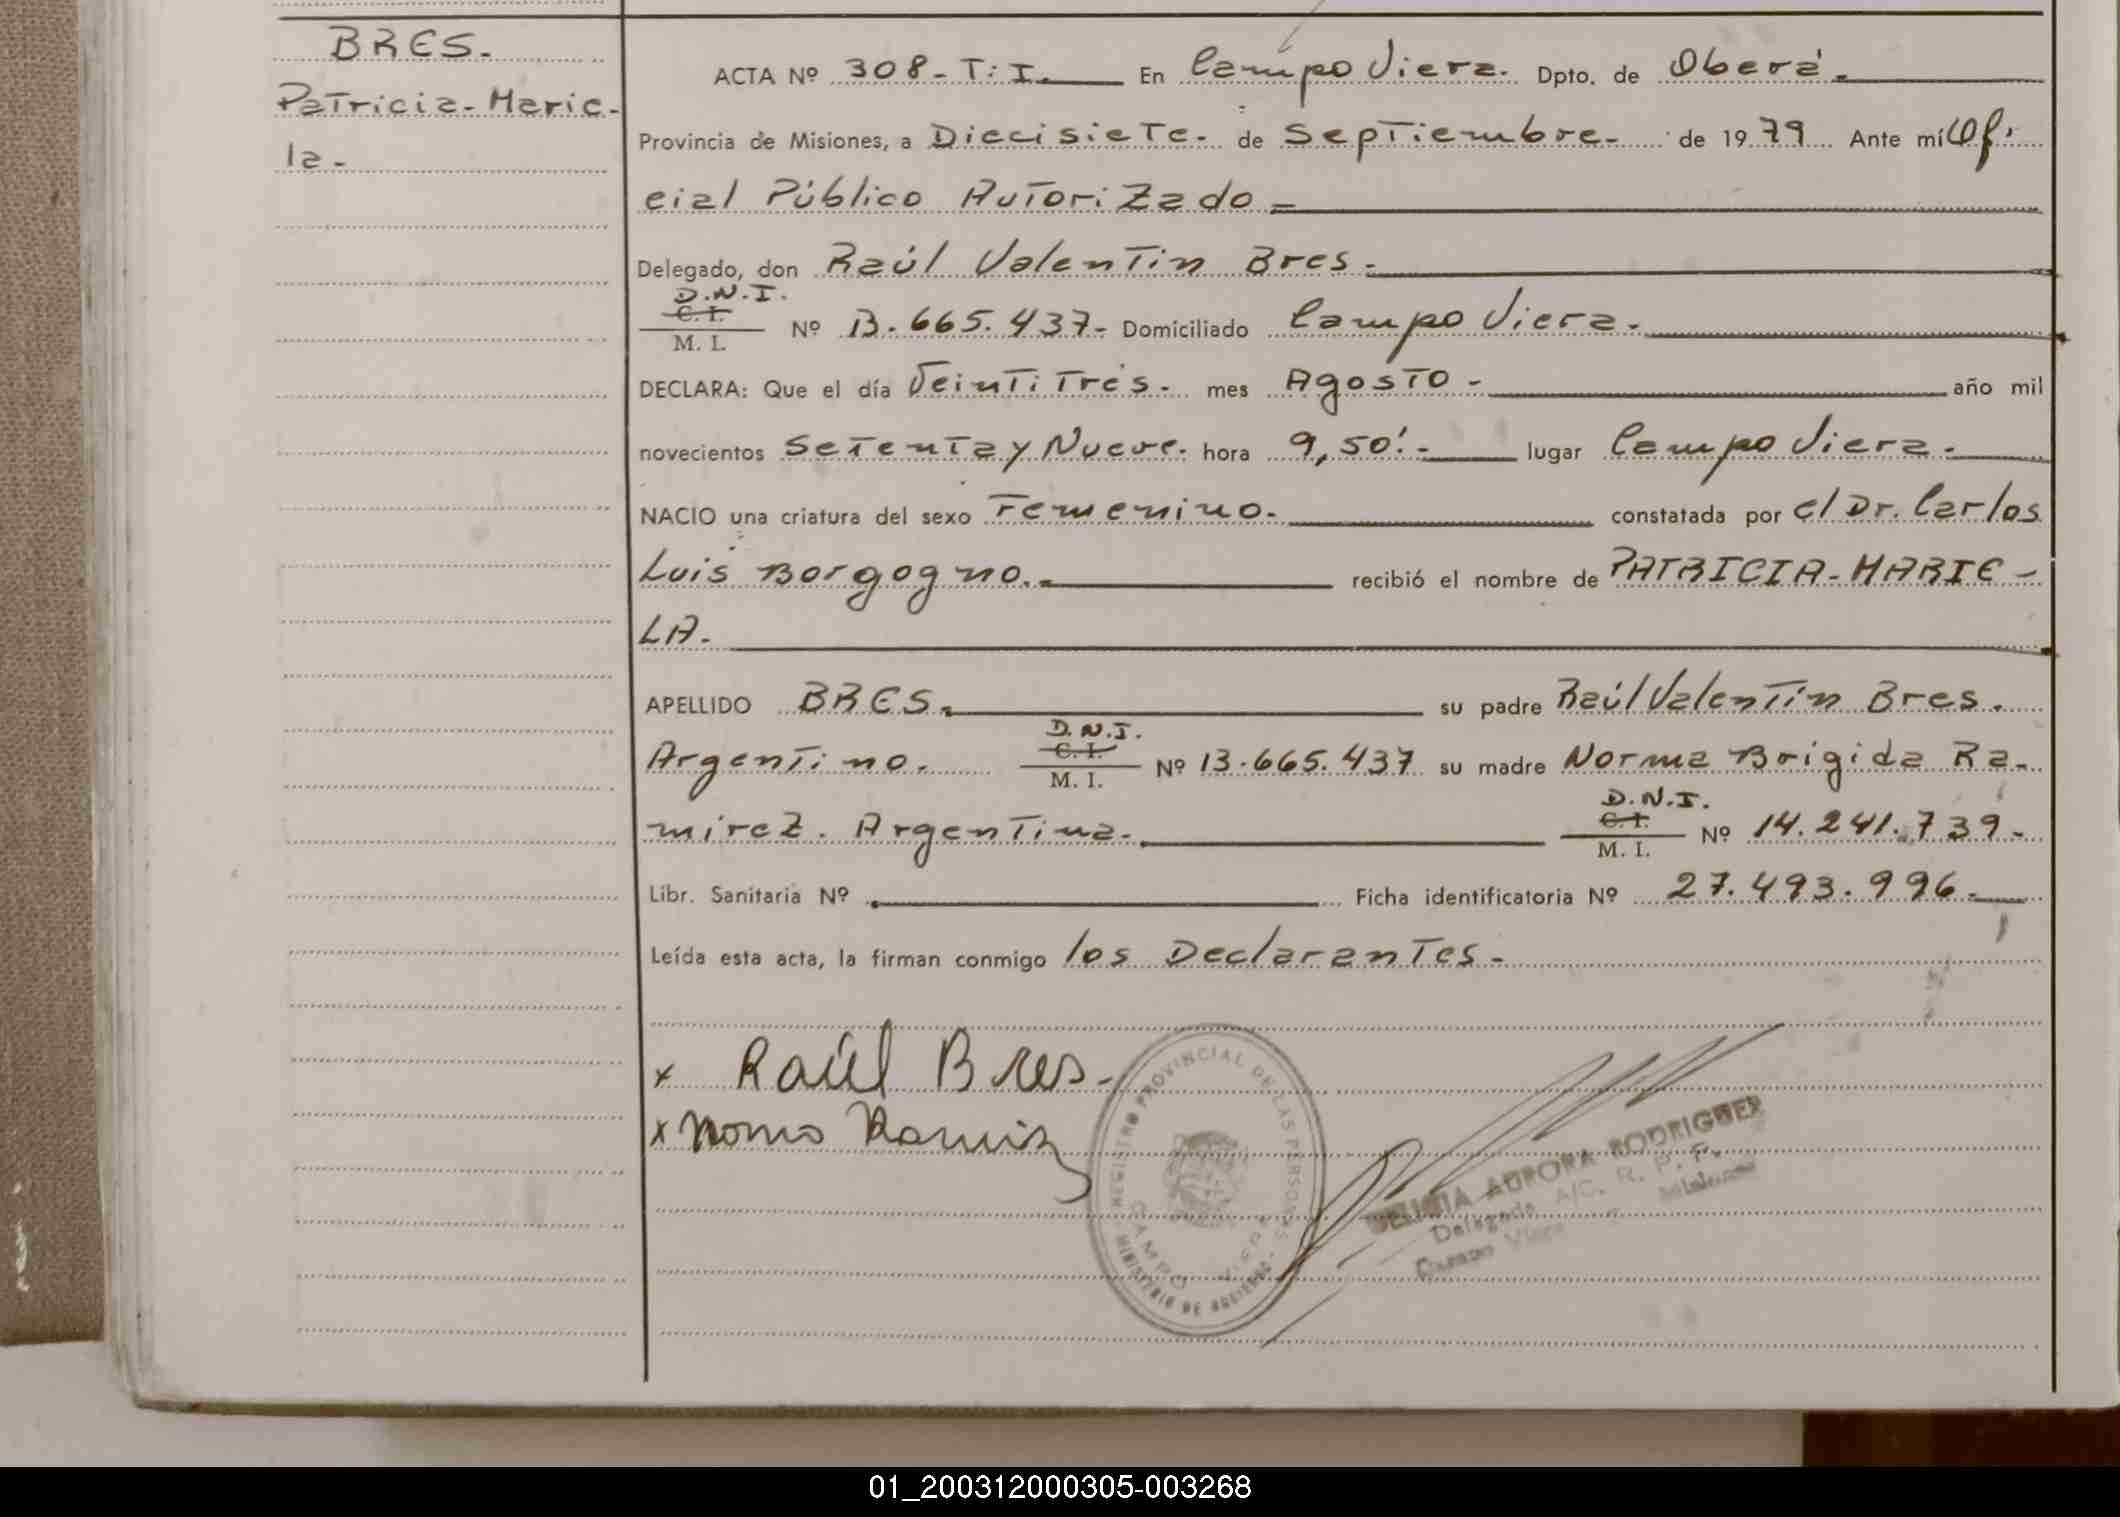 BRES.
Patricia-Marie-
la-
ACTA Nº 308-T:I. En Campo Viera. Dpto. de Oberá.
Provincia de Misiones, a Diecisiete- de Septiembre- de 1979 Ante mí Ofi-
cial Público Autorizado=
Delegado, don Raúl Valentin Bres.
D.N.I.
C. I.
M. I.
Nº 13.665.437- Domiciliado Campo Viera.
DECLARA: Que el día Veintitrés- mes Agosto- año mil
novecientos Setenta y Nueve. hora 9,50'.- lugar Campo Viera.
NACIO una criatura del sexo Femenino. constatada por el Dr. Carlos
Luis Borgogno. recibió el nombre de PATRICIA-MARIE-
LA.
APELLIDO BRES. su padre Raúl Valentín Bres.
Argentino. D.N.I. C. I. M. I. Nº 13.665.437 su madre Norma Brigida Ra-
mirez. Argentina. D.N.I. C. I. M. I. Nº 14.241.739-
Libr. Sanitaria Nº Ficha identificatoria Nº 27.493.996.
Leída esta acta, la firman conmigo los Declarantes-
x Raúl Bres.
x Norma Ramirez
REGISTRO PROVINCIAL DE LAS PERSONAS
CAMPO VIERA
MINISTERIO DE GOBIERNO
DELICIA AURORA RODRIGUEZ
Delegada A/C. R. P. P.
Campo Viera Misiones
01_200312000305-003268